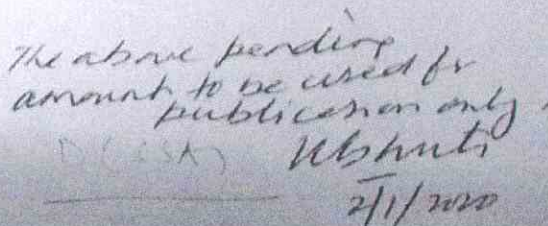 The above pending
amount to be used for
publication only.
2/1/2020